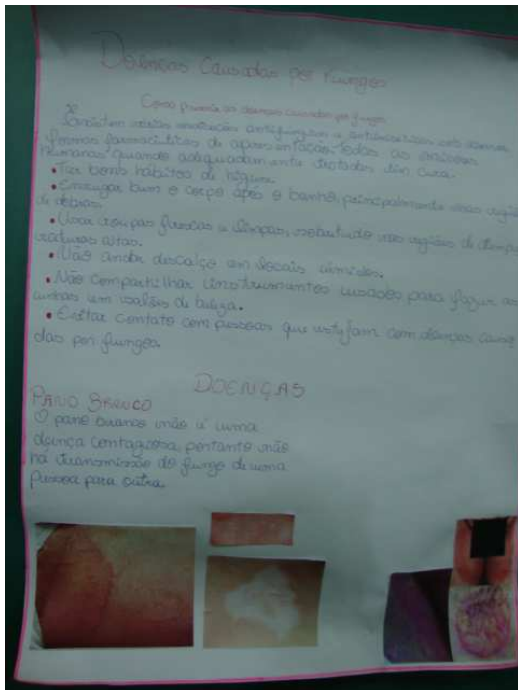 Doenças Causadas por Fungos
Como prevenir as doenças causadas por fungos
Existem várias medicações antifúngicas e antimicóticas sob várias
formas farmacêuticas de apresentação. Todas as micoses
humanas quando adequadamente tratadas têm cura.
• Ter bons hábitos de higiene.
• Enxugar bem o corpo após o banho, principalmente nas regiões
de dobras.
• Usar roupas frescas e limpas, sobretudo nas regiões de tempe
raturas altas.
• Não andar descalço em locais úmidos.
• Não compartilhar instrumentos usados para fazer as
unhas em salões de beleza.
• Evitar contato com pessoas que estejam com doenças causa
das por fungos.
DOENÇAS
PANO BRANCO
O pano branco não é uma
doença contagiosa, portanto não
há transmissão do fungo de uma
pessoa para outra